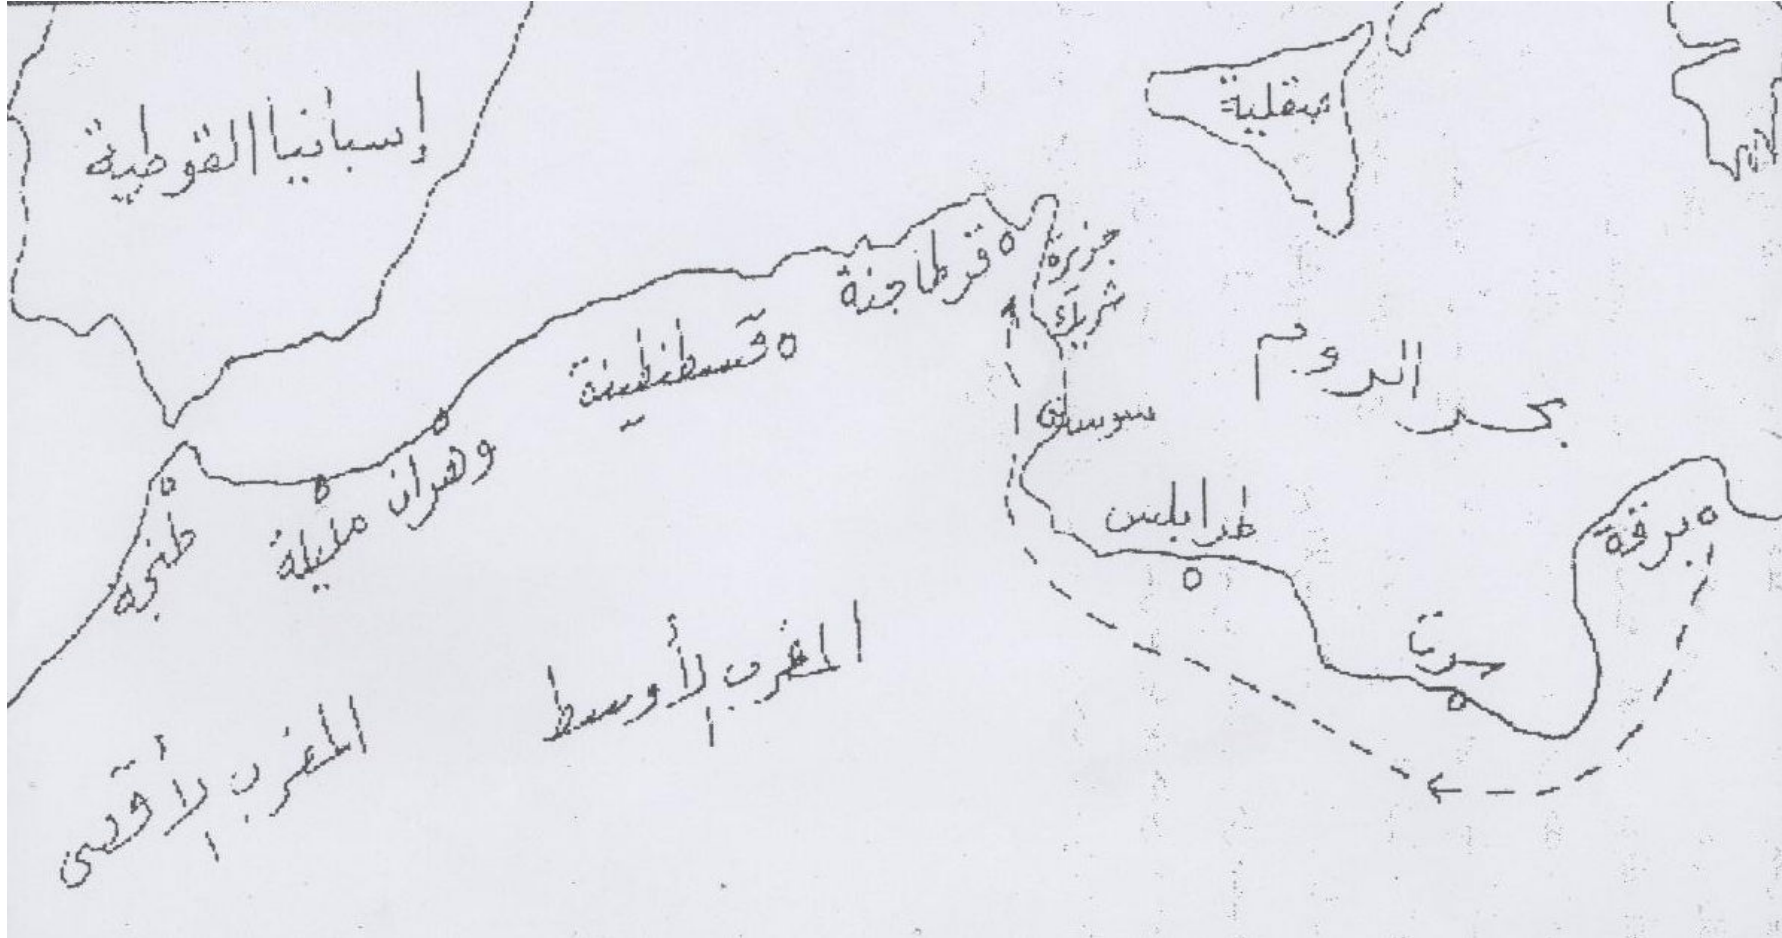 إسبانيا القوطية
صقلية
جزيرة
شريك
قرطاجنة
قسطنطينة
بحر الروم
سوسة
وهران
مليلة
طنجة
طرابلس
برقة
سرت
المغرب الأوسط
المغرب الأقصى